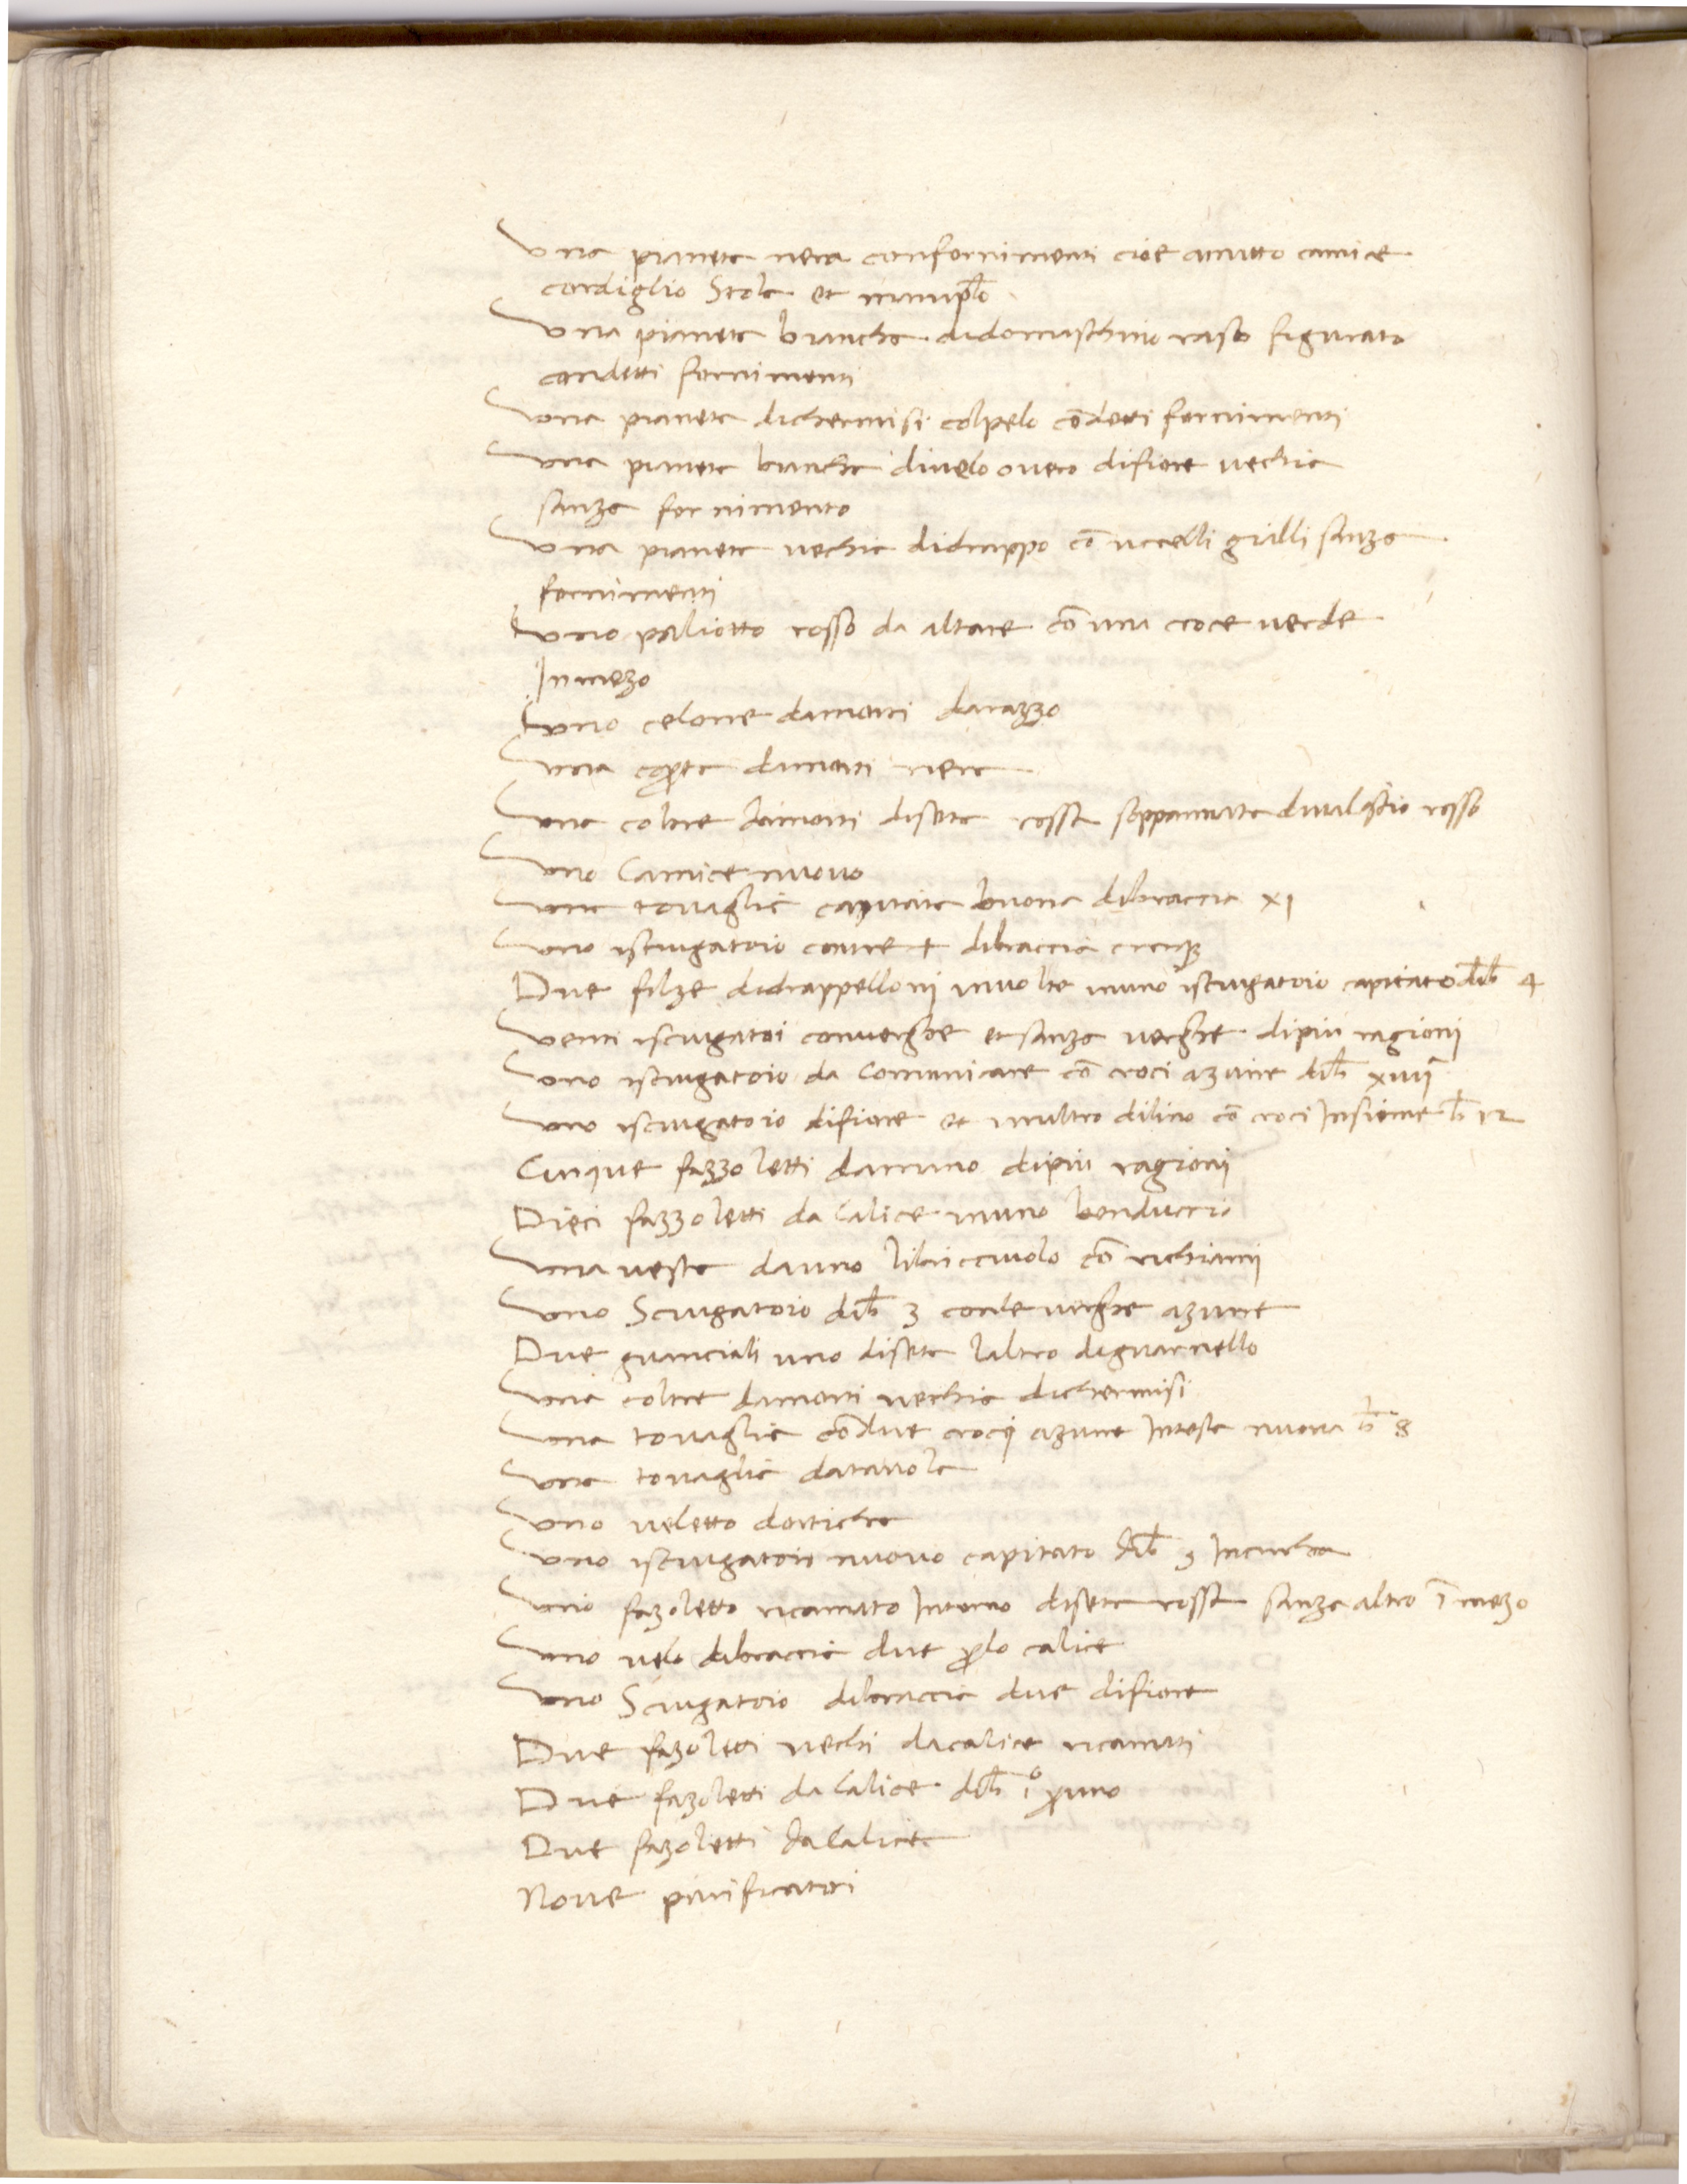 Una pianeta nera confornimenti cioe amitto camice
cordiglio Stola et manipolo
Una pianeta biancha didomaschino raso figurato
condetti fornimenti
Una pianeta dichermisi colpelo cō detti fornimenti
Una pianeta biancha divelo overo difiore vechia
sanza fornimento
Una pianeta vechia didrappo cō uccelli grilli sanza
fornimenti
Uno paliotto rosso da altare cō una croce verde
In mezo
Uno celone damorti darazzo
Una coperta damorti nera
Una coltre damorti diseta rossa soppannata di rosso
Uno Camice nuovo
Una tovaglia capitata buona dibraccia xi
Uno isciugatoio contre + dibraccia cinq
Due filze didrappelloni involte inuno isciugatoio capitato dib 4
Venti isciugatoi converghe et sanza verghe dipiu ragioni
Uno isciugatoio da Comunicare cō croci azurre dib xiiij
Uno isciugatoio difiore et unaltro dilino cō croci Insieme b 12
Cinque fazzoletti damano dipiu ragioni
Dieci fazzoletti da Calice inuno
Una vesta dauno libricciuolo cō richami
Uno Sciugatoio dib 3 conle verghe azurre
Due guanciali uno diseta laltro diguarnello
Una coltre damorti vechia dichermisi
Una tovaglia cōdue croci azurre Intesta nuova b 8
Una tovaglia datavola
Uno veletto dorticha
Uno isciugatoio nuovo capitato dib 3
Uno fazoletto ricamato Intorno diseta rossa sanza altro ī mezo
Uno velo dibraccia due plo calice
Uno Sciugatoio dibraccia due difiore
Due fazoletti vechi dacalice ricamati
Due fazoletti da Calice dib i° puno
Due fazoletti da Calice
Nove purificatori